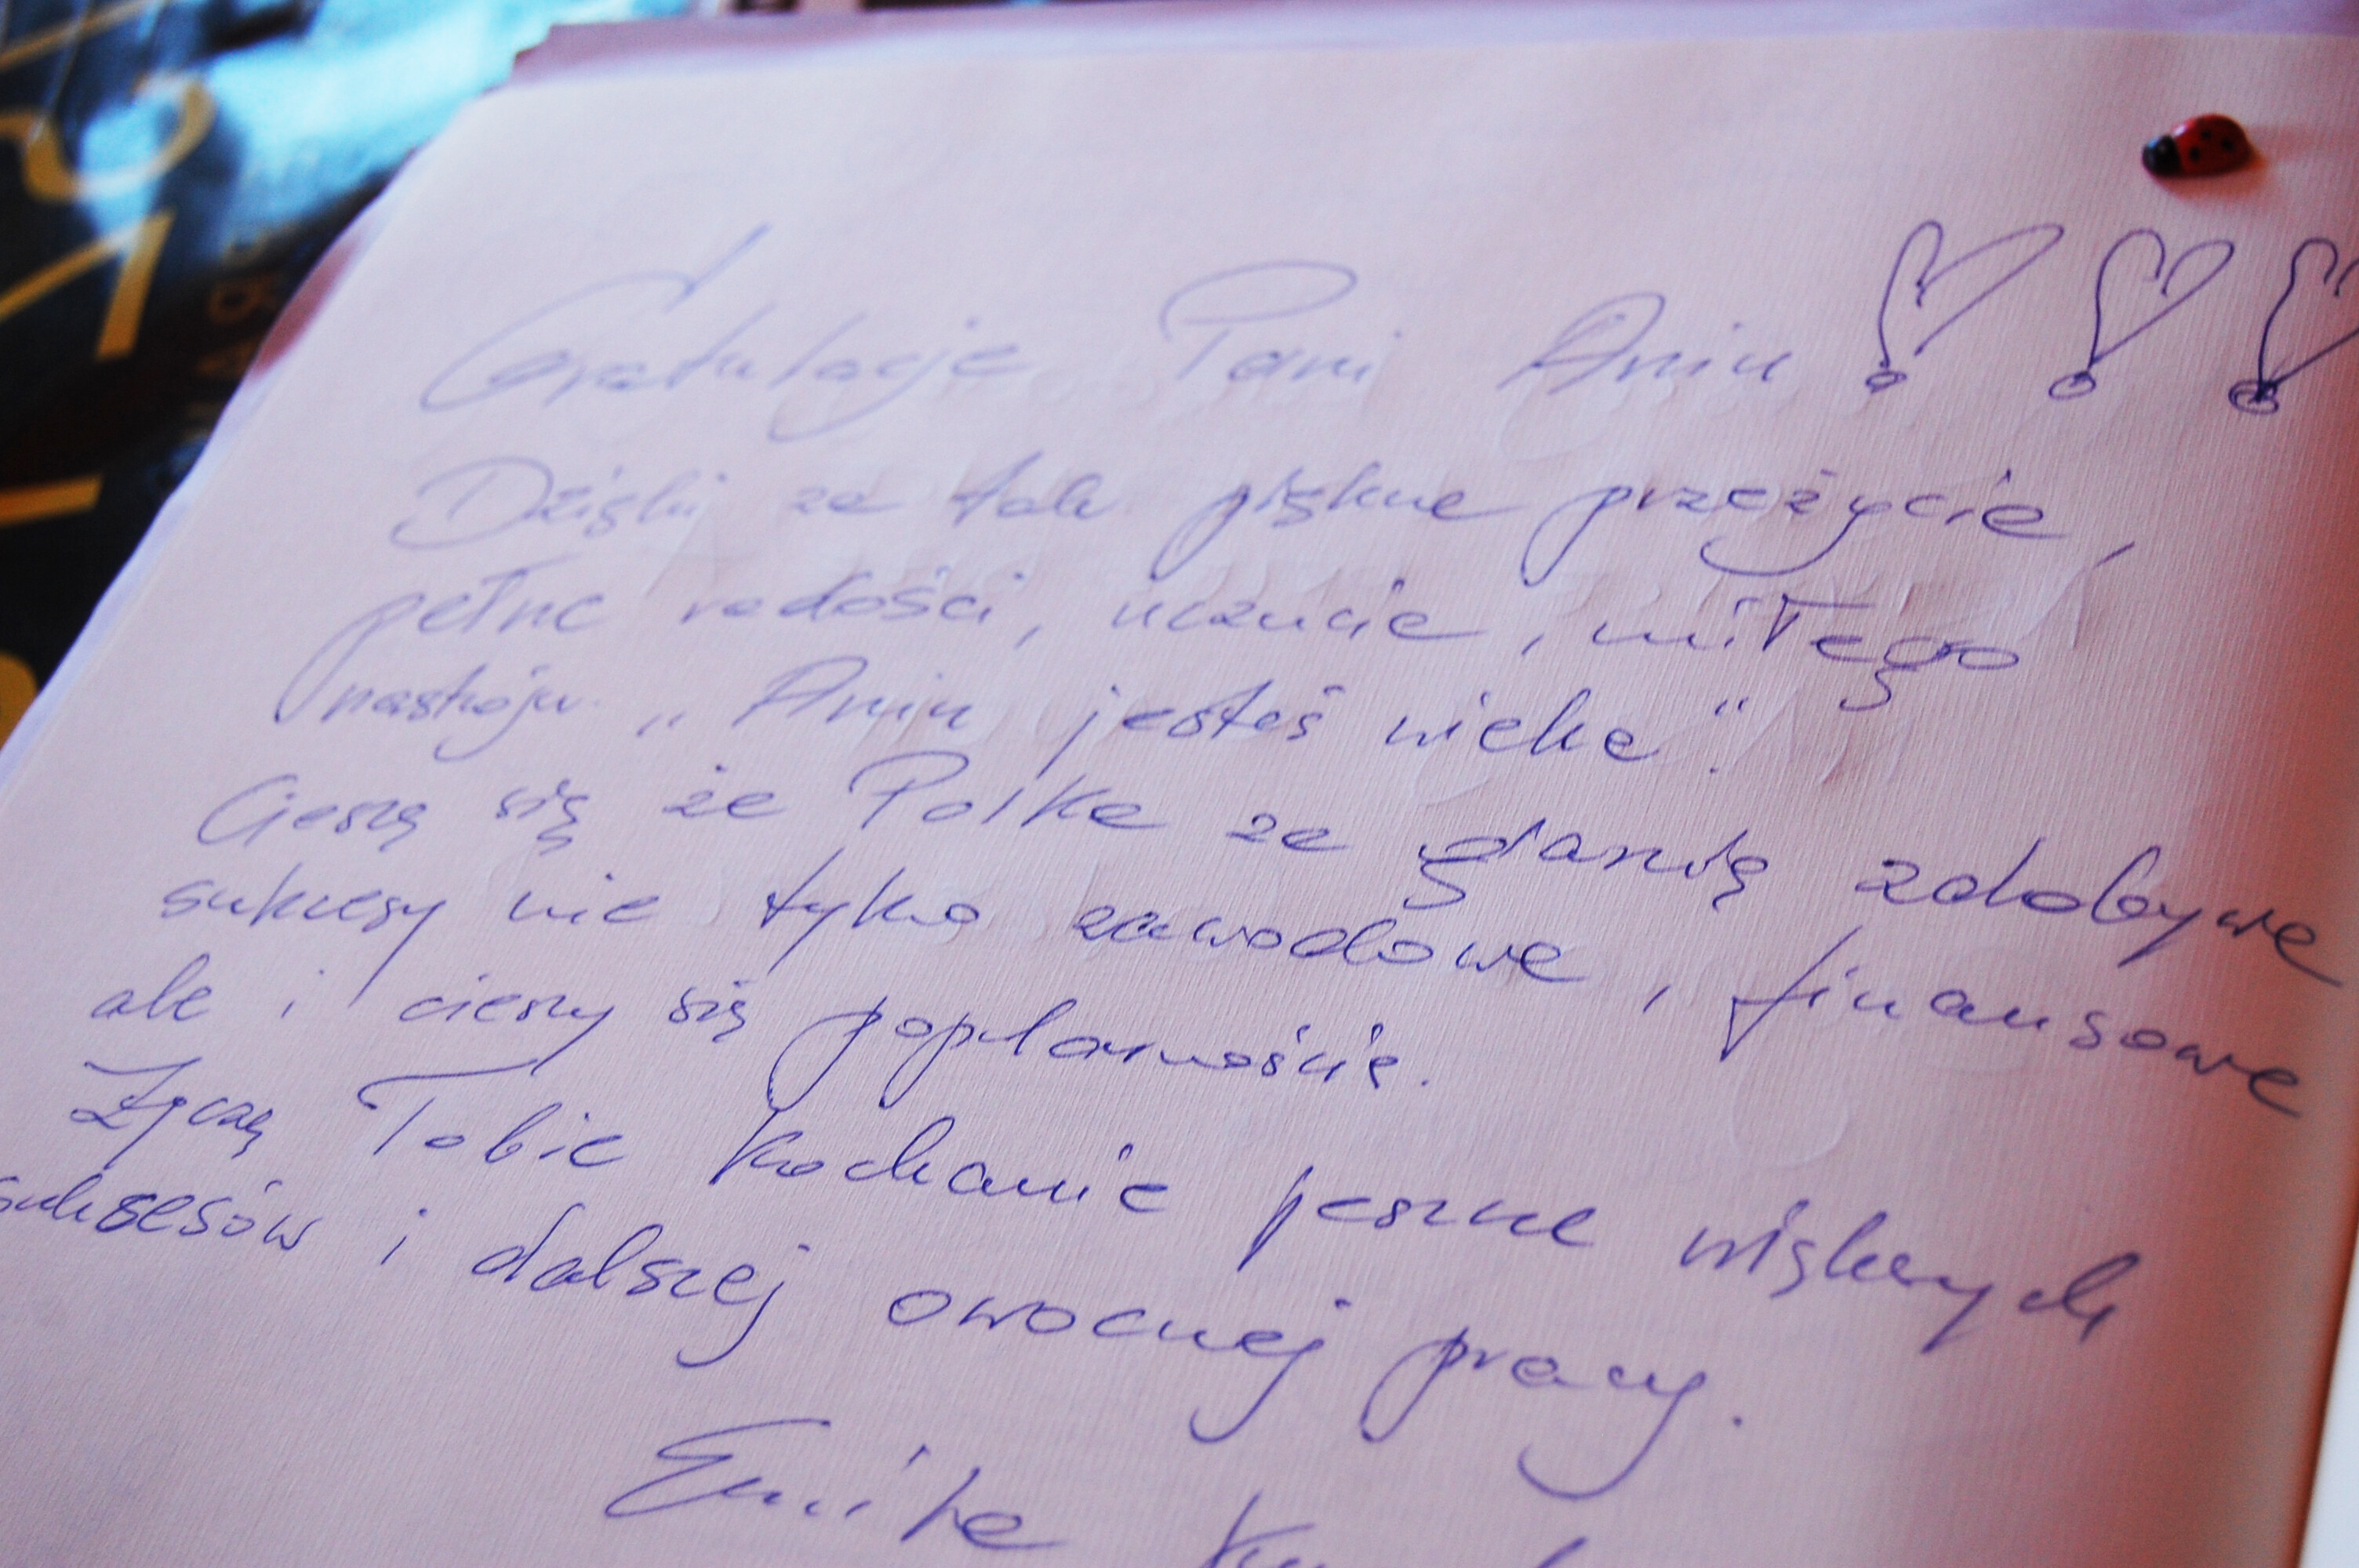 Gratulacje Pani Aniu
Dzięki za tak piękne przeżycie,
pełne radości, uczucie, miłego
nastroju. „Aniu jesteś wielka".
Cieszę się że Polka za granią zdobywa
sukcesy nie tylko zawodowe, finansowe
ale i cieszy się popularnością.
Życzę Tobie kochanie jeszcze większych
sukcesów i dalszej owocnej pracy.
Emilia